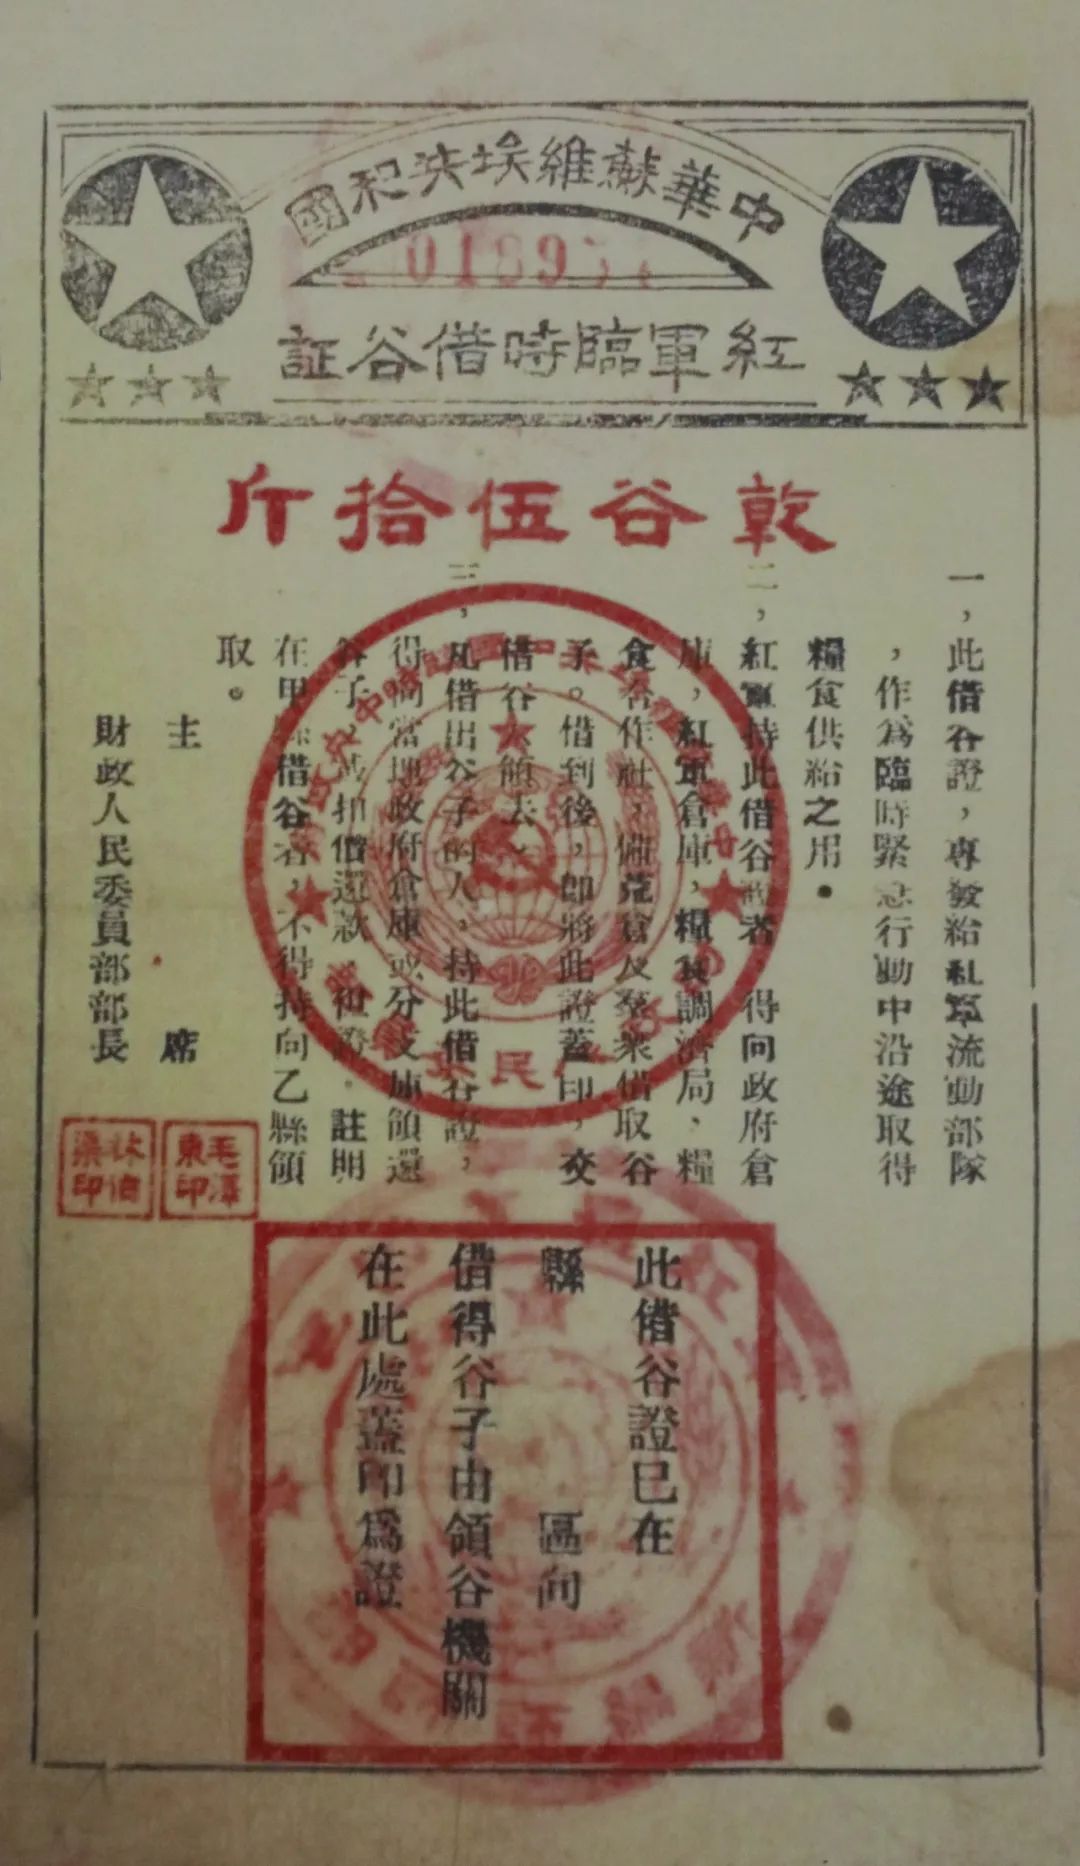 中華蘇維埃共和國
紅軍臨時借谷証
乾谷伍拾斤
一，此借谷證，專發給紅軍流動部隊
，作爲臨時緊急行動中沿途取得
糧食供給之用。
二，紅軍持此借谷證者 得向政府倉
庫，紅軍倉庫，糧食調濟局，糧
食合作社，備荒倉及羣衆借取谷
子。借到後，即將此證蓋印，交
借谷人領去。
三，凡借出谷子的人，持此借谷證，
得向當地政府倉庫或分支庫領還
谷子，或扣價還款 但證 註明
在甲縣借谷者，不得持向乙縣領
取。
主 席
財政人民委員部部長
毛澤東印
林伯渠印
此借谷證已在
縣 區向
借得谷子由領谷機關
在此處蓋印爲證